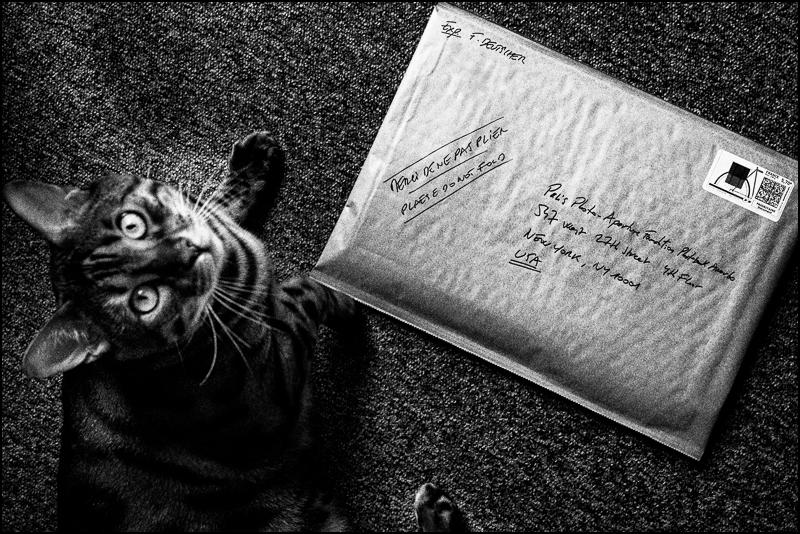 Exp F. DEUTSCHER
MERCI DE NE PAS PLIER
PLEASE DO NOT FOLD
Paris Photo - Aperture Foundation PhotoBook Awards
547 West 27th Street 4th Floor
NEW YORK, NY 10001
USA